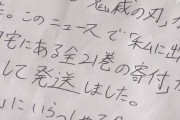 鬼滅の刃」
。このニュースで私に出
宅にある全21巻の寄付
して発送しました。
にいらっしゃる